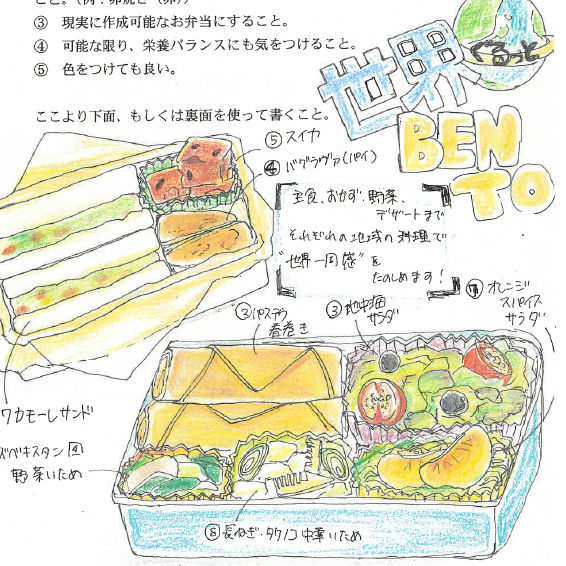 こと。(例:卵焼き(卵))
③ 現実に作成可能なお弁当にすること。
④ 可能な限り、栄養バランスにも気をつけること。
⑤ 色をつけても良い。
ここより下面、もしくは裏面を使って書くこと。
ぐるっと
世界
BEN
TO
⑤スイカ
④バクラヴァ(パイ)
主食、おかず、野菜、
デザートまで
それぞれの地域の料理で
"世界一周感"を
たのしめます!
②パステウ
春巻き
③地中海
サラダ
⑦オレンジ
スパイス
サラダ
ワカモーレサンド
ズベキスタン風
野菜いため
⑧長ねぎ・タケノコ中華いため